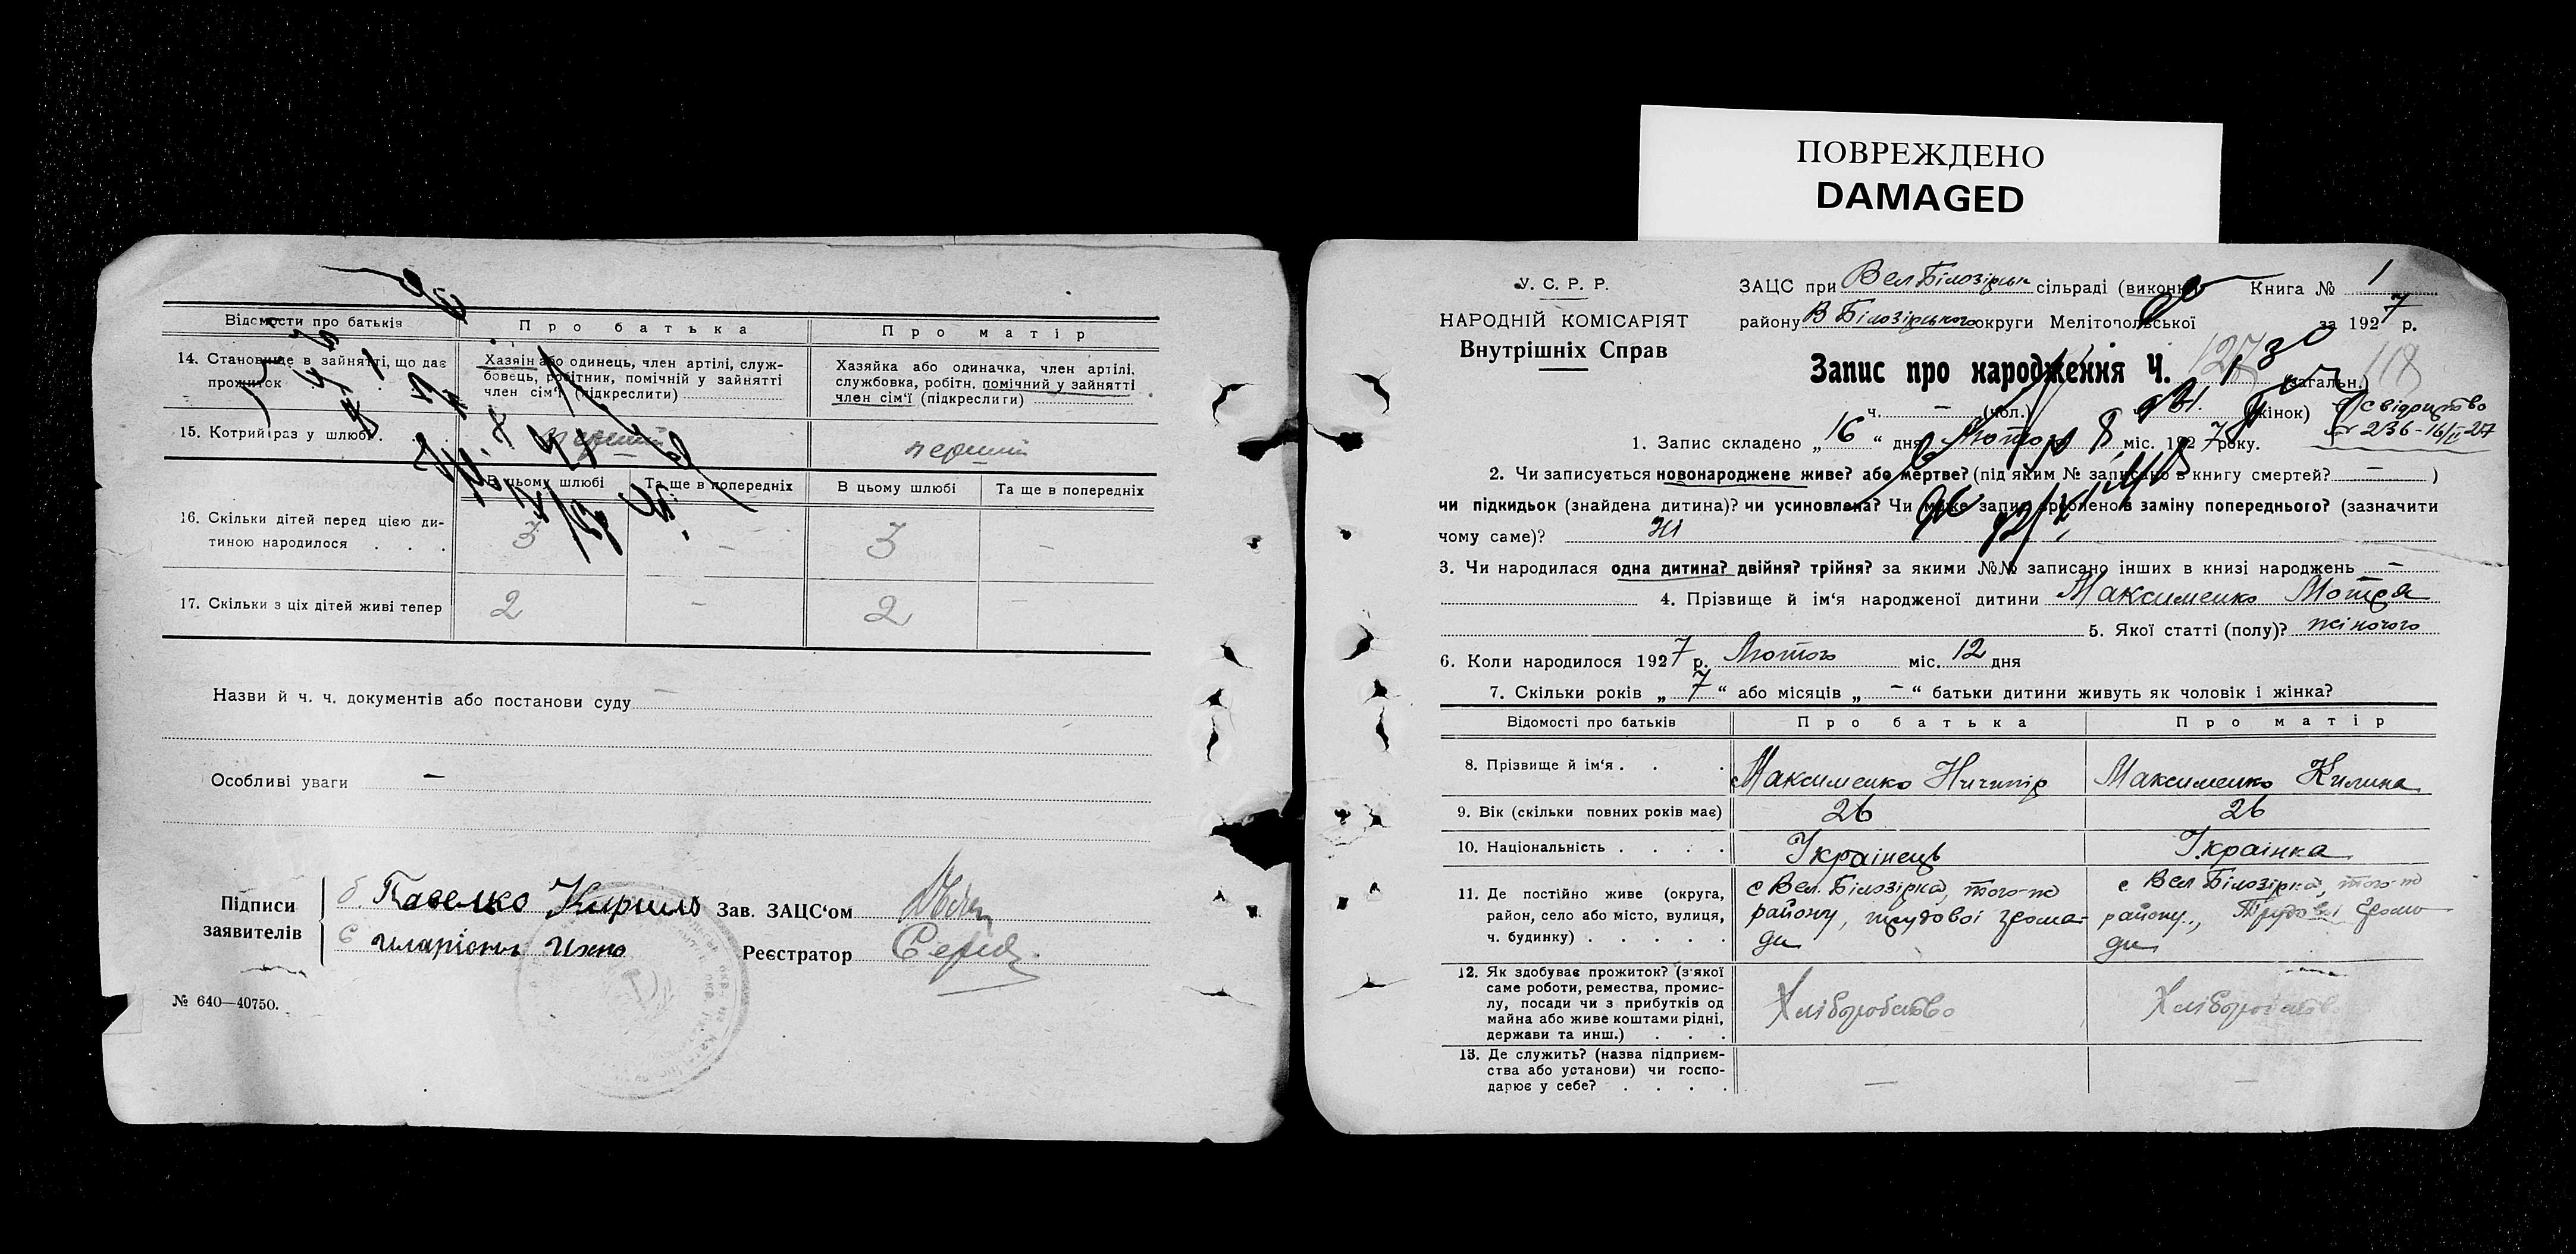 ПОВРЕЖДЕНО
DAMAGED
Відомости про батьків
Про батька
Про матір
14. Становище в зайнятті, що дає
прожиток
Хазяїн або одинець, член артілі, служ-
бовець, робітник, помічній у зайнятті
член сім'ї (підкреслити)
Хазяйка або одиначка, член артілі,
службовка, робітн. помічний у зайнятті
член сім'ї (підкреслити)
15. Котрий раз у шлюбі .
перший
перший
В цьому шлюбі
Та ще в попередніх
В цьому шлюбі
Та ще в попередніх
16. Скільки дітей перед цією ди-
тиною народилося . . .
3 – 3 –
17. Скільки з ціх дітей живі тепер
2 – 2 –
Назви й ч. ч. документів або постанови суду
Особливі уваги –
Підписи
заявителів
Павелко Кирило
Зав. ЗАЦС'ом
Реєстратор
№ 640—40750.
У. С. Р. Р.
НАРОДНІЙ КОМІСАРІЯТ
Внутрішніх Справ
ЗАЦС при Вел Білозірськ сільраді (виконк
Книга № 1
району В Білозірського округи Мелітопольської
за 1927 р.
Запис про народження Ч. 127 (загальн.) 118
ч. – (чол.) (жінок)
свідоцтво
236-16/II-27
1. Запис складено „16“ дня Лютого міс. 1927 року.
2. Чи записується новонароджене живе? або мертве? (під яким № записано в книгу смертей? – )
чи підкидьок (знайдена дитина)? чи усиновлена? Чи може запис зроблено в заміну попереднього? (зазначити
чому саме)? Ні
3. Чи народилася одна дитина? двійня? трійня? за якими №№ записано інших в книзі народжень –
4. Прізвище й ім'я народженої дитини Максименко Мотря
5. Якої статті (полу)? жіночого
6. Коли народилося 1927 р. Лютого міс. 12 дня
7. Скільки років „7“ або місяців „–“ батьки дитини живуть як чоловік і жінка?
Відомості про батьків
Про батька
Про матір
8. Прізвище й ім'я . . .
Максименко Ничипір
Максименко Килина
9. Вік (скільки повних років має)
26
26
10. Національність . . . .
Українець
Українка
11. Де постійно живе (округа,
район, село або місто, вулиця,
ч. будинку) . . . . .
с Вел. Білозірка, того-ж
району, трудової грома-
ди
с Вел Білозірка, того-ж
району, Трудової Грома
ди
12. Як здобуває прожиток? (з якої
саме роботи, ремества, промис-
лу, посади чи з прибутків од
майна або живе коштами рідні,
держави та инш.) . . .
Хліборобство
Хліборобство
13. Де служить? (назва підприєм-
ства або установи) чи госпо-
дарює у себе? . . . .
—
—